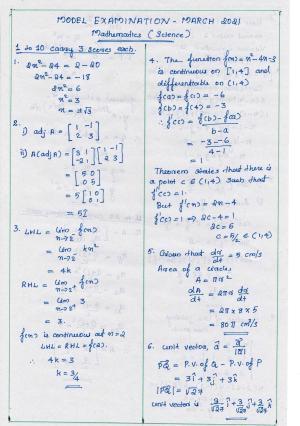 MODEL EXAMINATION - MARCH 2021
Mathematics (Science)
1 to 10 carry 3 scores each.
1. 2x² - 24 = 2 - 20
2x² - 24 = -18
2x² = 6
x² = 3
x = ±√3
2.
i) adj A = [1 -1
2 3]
ii) A(adj A) = [3 1
-2 1] [1 -1
2 3]
= [5 0
0 5]
= 5 [1 0
0 1]
= 5I
3. LHL = lim x→2⁻ f(x)
= lim x→2⁻ kx²
= 4k
RHL = lim x→2⁺ f(x)
= lim x→2⁺ 3
= 3.
f(x) is continuous at x = 2
LHL = RHL = f(2).
∴ 4k = 3
k = 3/4
4. The function f(x) = x² - 4x - 3
is continuous on [1,4] and
differentiable on (1,4)
f(a) = f(1) = -6
f(b) = f(4) = -3
∴ f'(c) = f(b) - f(a) / b - a
= -3 - -6 / 4 - 1
= 1
Theorem states that there is
a point c ∈ (1,4) such that
f'(c) = 1.
But f'(x) = 2x - 4
f'(c) = 1 ⇒ 2c - 4 = 1
2c = 5
c = 5/2 ∈ (1,4)
5. Given that dr/dt = 5 cm/s
Area of a circle,
A = πr²
dA/dt = 2πr dr/dt
= 2π × 8 × 5
= 80π cm²/s
6. unit vector, â = a⃗ / |a⃗|
P⃗Q = P.v of Q - P.v of P
= 3î + 3ĵ + 3k̂
|P⃗Q| = √27
unit vector is 3/√27 î + 3/√27 ĵ + 3/√27 k̂